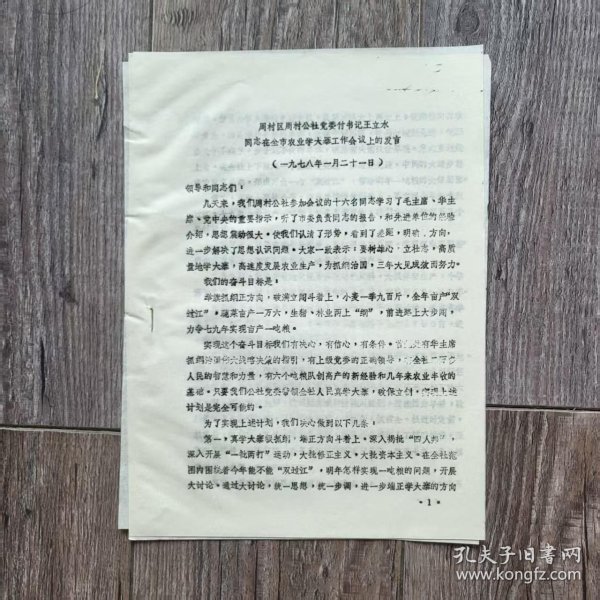 周村区周村公社党委付书记王立水
同志在全市农业学大寨工作会议上的发言
(一九七八年一月二十一日)
领导和同志们:
几天来,我们周村公社参加会议的十六名同志学习了毛主席、华主
席、党中央的重要指示,听了市委负责同志的报告,和先进单位的经验
介绍,思想震动很大。使我们认清了形势,看到了差距,明确 方向,
进一步解决了思想认识问题。大家一致表示:要树雄心,立壮志,高质
量地学大寨,高速度发展农业生产,为抓纲治国,三年大见成效而努力。
我们的奋斗目标是:
举旗抓纲正方向,破满立闯斗着上,小麦一季九百斤,全年亩产“双
过江”。蔬菜亩产一万六,生猪、林业两上“纲”,前进路上大步闯,
力争七九年实现亩产一吨粮。
实现这个奋斗目标我们有决心,有信心,有条件。 有华主席
抓纲治国 大战略决策的指引,有上级党委的正确领导,有全社
人民的智慧和力量,有六个吨粮队创高产的新经验和几年来农业丰收的
基础。只要我们公社党委带领全社人民真学大寨,敢保立创,实现上述
计划是完全可能的。
为了实现上述计划,我们决心做到以下几条:
第一,真学大寨狠抓纲,端正方向斗着上。深入揭批“四人帮”,
深入开展“一批两打”运动,大批修正主义。大批资本主义。在全社范
围内围绕着今年能不能“双过江”,明年怎样实现一吨粮的问题,开展
大讨论。通过大讨论,统一思想,统一步调,进一步端正学大寨的方向
*1*
孔夫子旧书网
www.kongfz.com